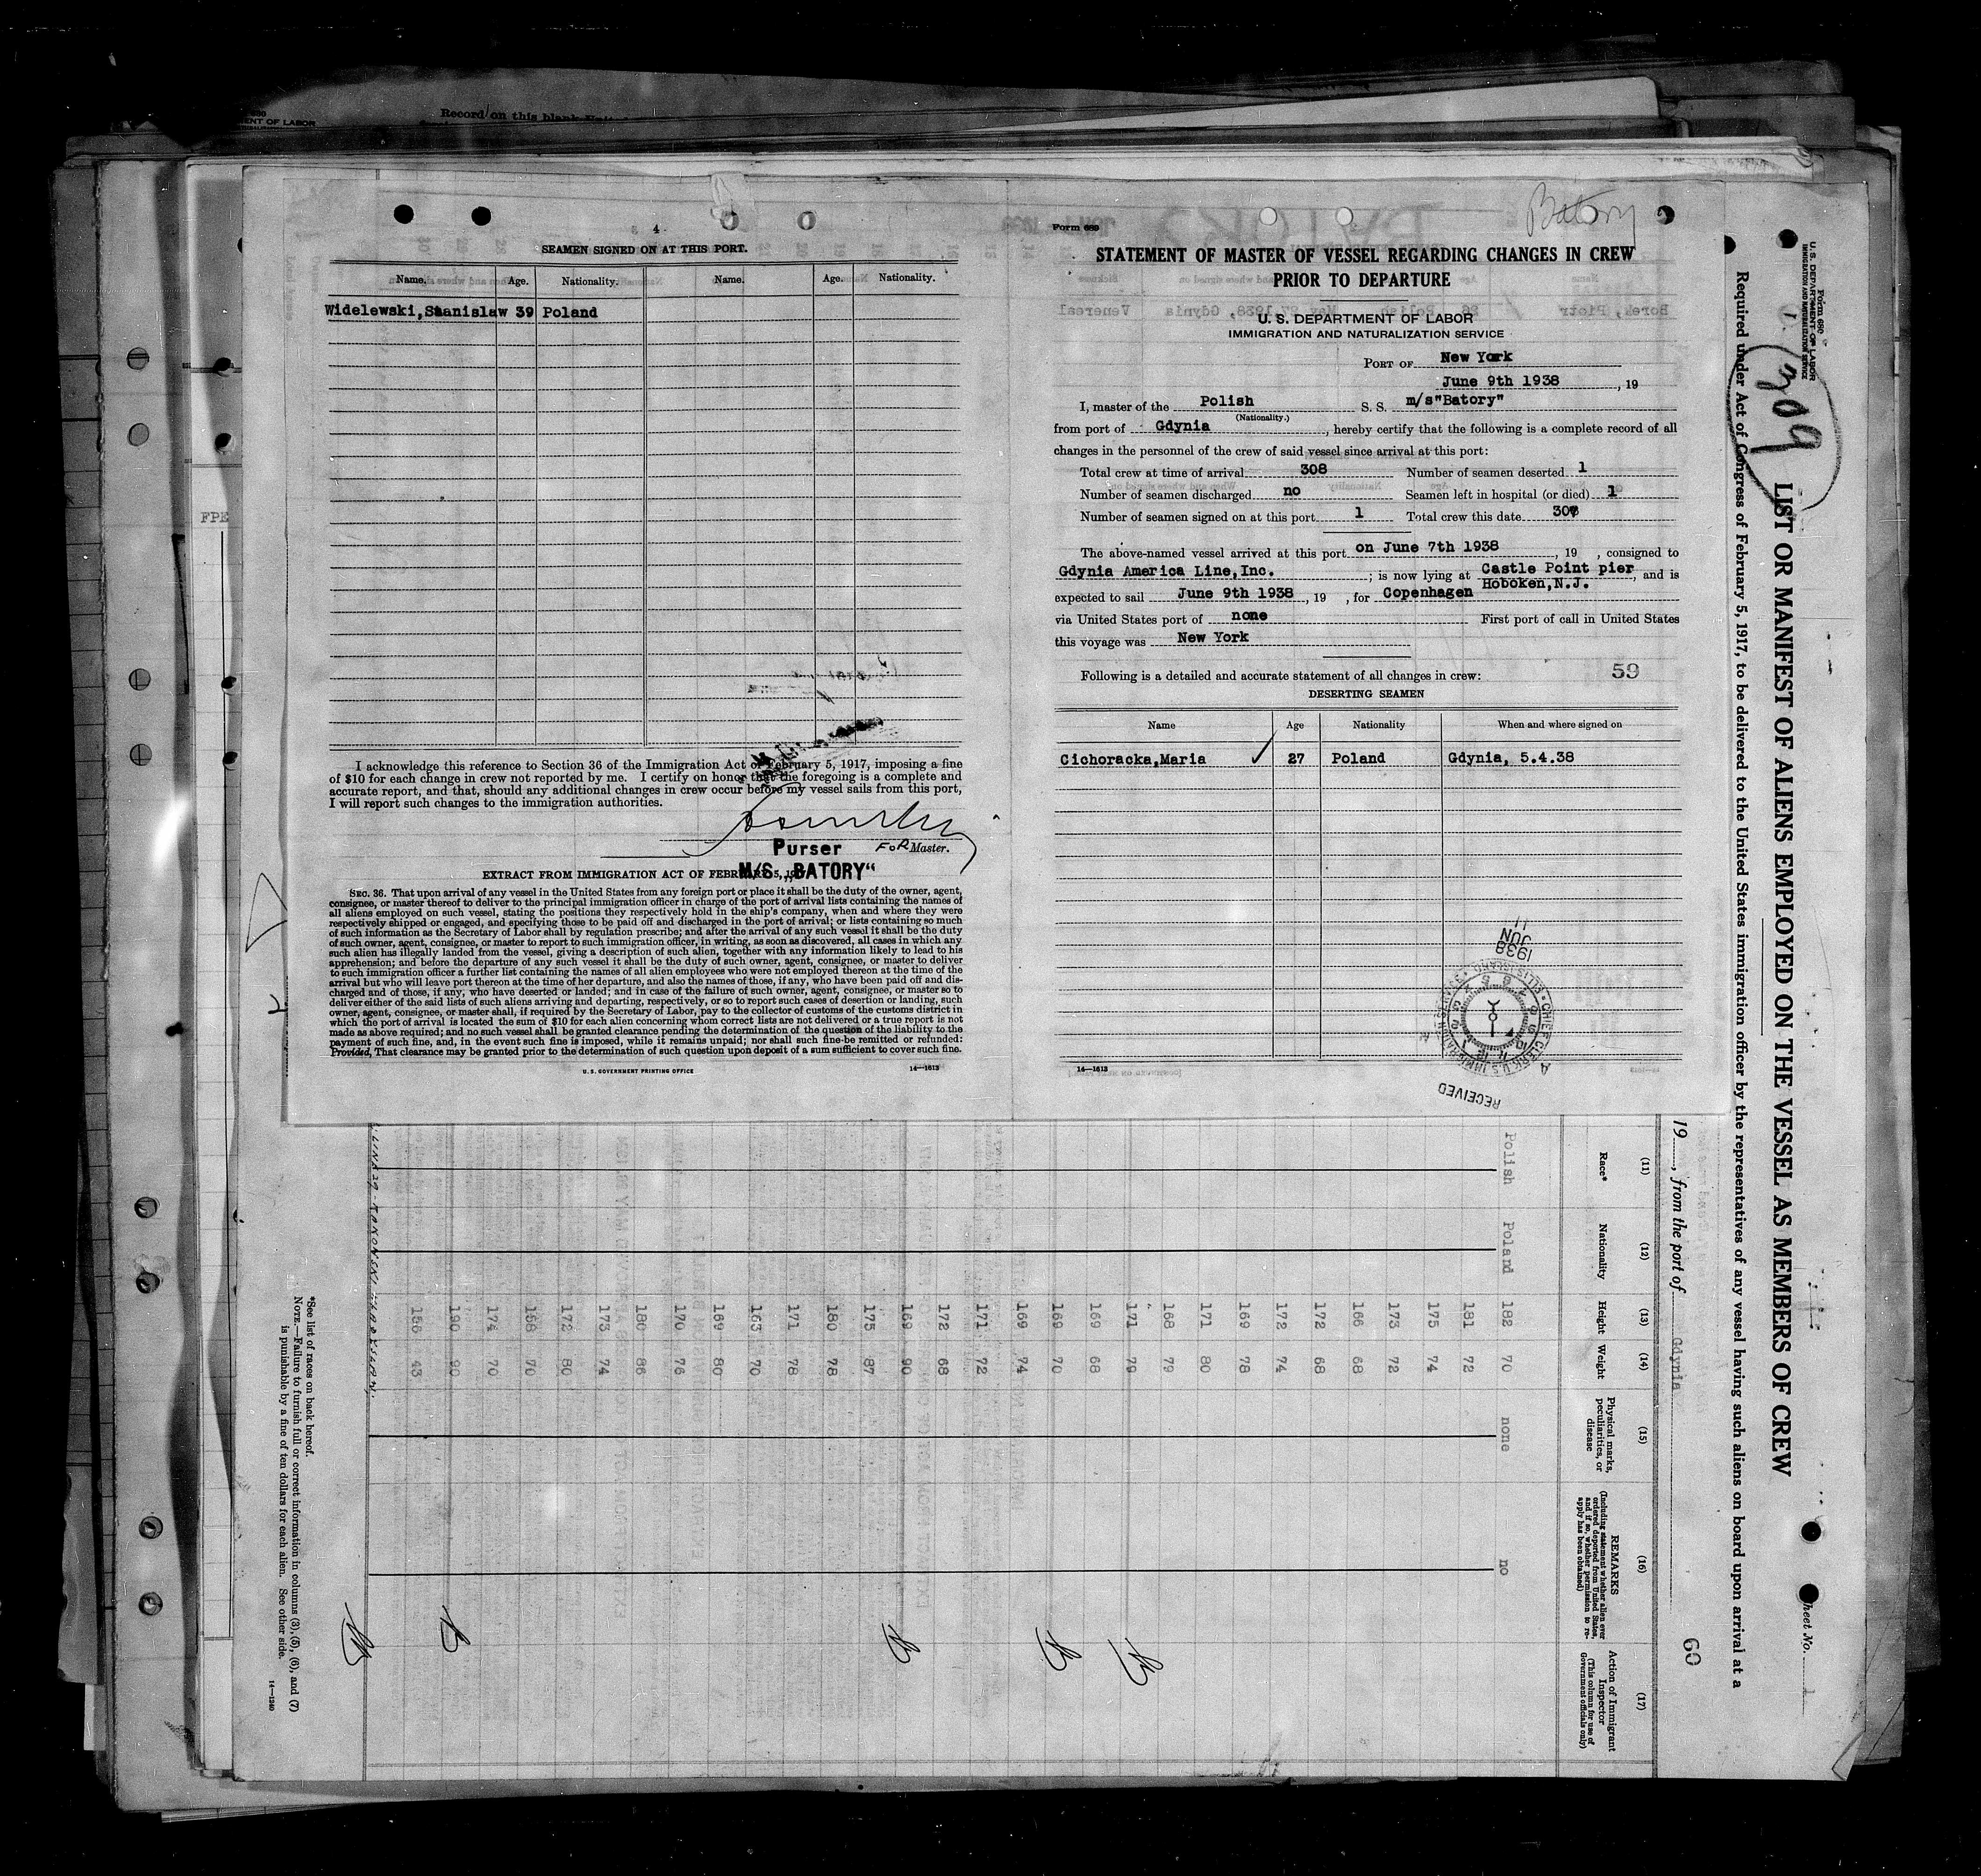 Record on this blank
ENT OF LABOR
FPE
4
SEAMEN SIGNED ON AT THIS PORT.
Name. Age. Nationality. Name. Age. Nationality.
Widelewski,Stanislaw 39 Poland
I acknowledge this reference to Section 36 of the Immigration Act of February 5, 1917, imposing a fine
of $10 for each change in crew not reported by me. I certify on honor that the foregoing is a complete and
accurate report, and that, should any additional changes in crew occur before my vessel sails from this port,
I will report such changes to the immigration authorities.
Purser FOR Master.
M/S „BATORY“
EXTRACT FROM IMMIGRATION ACT OF FEBRUARY 5, 1917
SEC. 36. That upon arrival of any vessel in the United States from any foreign port or place it shall be the duty of the owner, agent,
consignee, or master thereof to deliver to the principal immigration officer in charge of the port of arrival lists containing the names of
all aliens employed on such vessel, stating the positions they respectively hold in the ship's company, when and where they were
respectively shipped or engaged, and specifying those to be paid off and discharged in the port of arrival; or lists containing so much
of such information as the Secretary of Labor shall by regulation prescribe; and after the arrival of any such vessel it shall be the duty
of such owner, agent, consignee, or master to report to such immigration officer, in writing, as soon as discovered, all cases in which any
such alien has illegally landed from the vessel, giving a description of such alien, together with any information likely to lead to his
apprehension; and before the departure of any such vessel it shall be the duty of such owner, agent, consignee, or master to deliver
to such immigration officer a further list containing the names of all alien employees who were not employed thereon at the time of the
arrival but who will leave port thereon at the time of her departure, and also the names of those, if any, who have been paid off and dis-
charged and of those, if any, who have deserted or landed; and in case of the failure of such owner, agent, consignee, or master so to
deliver either of the said lists of such aliens arriving and departing, respectively, or so to report such cases of desertion or landing, such
owner, agent, consignee, or master shall, if required by the Secretary of Labor, pay to the collector of customs of the customs district in
which the port of arrival is located the sum of $10 for each alien concerning whom correct lists are not delivered or a true report is not
made as above required; and no such vessel shall be granted clearance pending the determination of the question of the liability to the
payment of such fine, and, in the event such fine is imposed, while it remains unpaid; nor shall such fine be remitted or refunded:
Provided, That clearance may be granted prior to the determination of such question upon deposit of a sum sufficient to cover such fine.
U.S. GOVERNMENT PRINTING OFFICE 14—1613
Batory
Form 689
STATEMENT OF MASTER OF VESSEL REGARDING CHANGES IN CREW
PRIOR TO DEPARTURE
U. S. DEPARTMENT OF LABOR
IMMIGRATION AND NATURALIZATION SERVICE
PORT OF New York
June 9th 1938, 19
I, master of the Polish S. S. m/s"Batory"
(Nationality.)
from port of Gdynia, hereby certify that the following is a complete record of all
changes in the personnel of the crew of said vessel since arrival at this port:
Total crew at time of arrival 308 Number of seamen deserted 1
Number of seamen discharged no Seamen left in hospital (or died) 1
Number of seamen signed on at this port 1 Total crew this date 307
The above-named vessel arrived at this port on June 7th 1938, 19 , consigned to
Gdynia America Line,Inc. ; is now lying at Castle Point pier, and is
Hoboken,N.J.
expected to sail June 9th 1938, 19 , for Copenhagen
via United States port of none First port of call in United States
this voyage was New York
Following is a detailed and accurate statement of all changes in crew: 59
DESERTING SEAMEN
Name Age Nationality When and where signed on
Cichoracka,Maria ✓ 27 Poland Gdynia, 5.4.38
1938
JUN
11
CHIEF CLERK U.S. IMMIGRATION SERVICE ELLIS ISLAND
RECEIVED
14—1613
Form 680
U. S. DEPARTMENT OF LABOR
IMMIGRATION AND NATURALIZATION SERVICE
309
LIST OR MANIFEST OF ALIENS EMPLOYED ON THE VESSEL AS MEMBERS OF CREW
Required under Act of Congress of February 5, 1917, to be delivered to the United States immigration officer by the representatives of any vessel having such aliens on board upon arrival at a
heet No. 1
19 , from the port of Gdynia
60
(11) (12) (13) (14) (15) (16) (17)
Race* Nationality Height Weight Physical marks, peculiarities, or disease REMARKS (Including statement whether alien ever ordered deported from United States, and if so, whether permission to re-apply has been obtained) Action of Immigrant Inspector (This column for use of Government officials only)
Polish Poland 182 70 none no
181 72
175 74
173 72
166 68
172 68
172 74
169 78
171 80
168 79
171 79
169 68
169 70
169 74
171 72
172 68
169 90
175 87
180 78
171 78
163 70
169 80
170 76
180 86
173 74
172 80
168 70
174 70
190 90
156 43
*See list of races on back hereof.
NOTE.—Failure to furnish full or correct information in columns (3), (5), (6), and (7)
is punishable by a fine of ten dollars for each alien. See other side.
14—1240